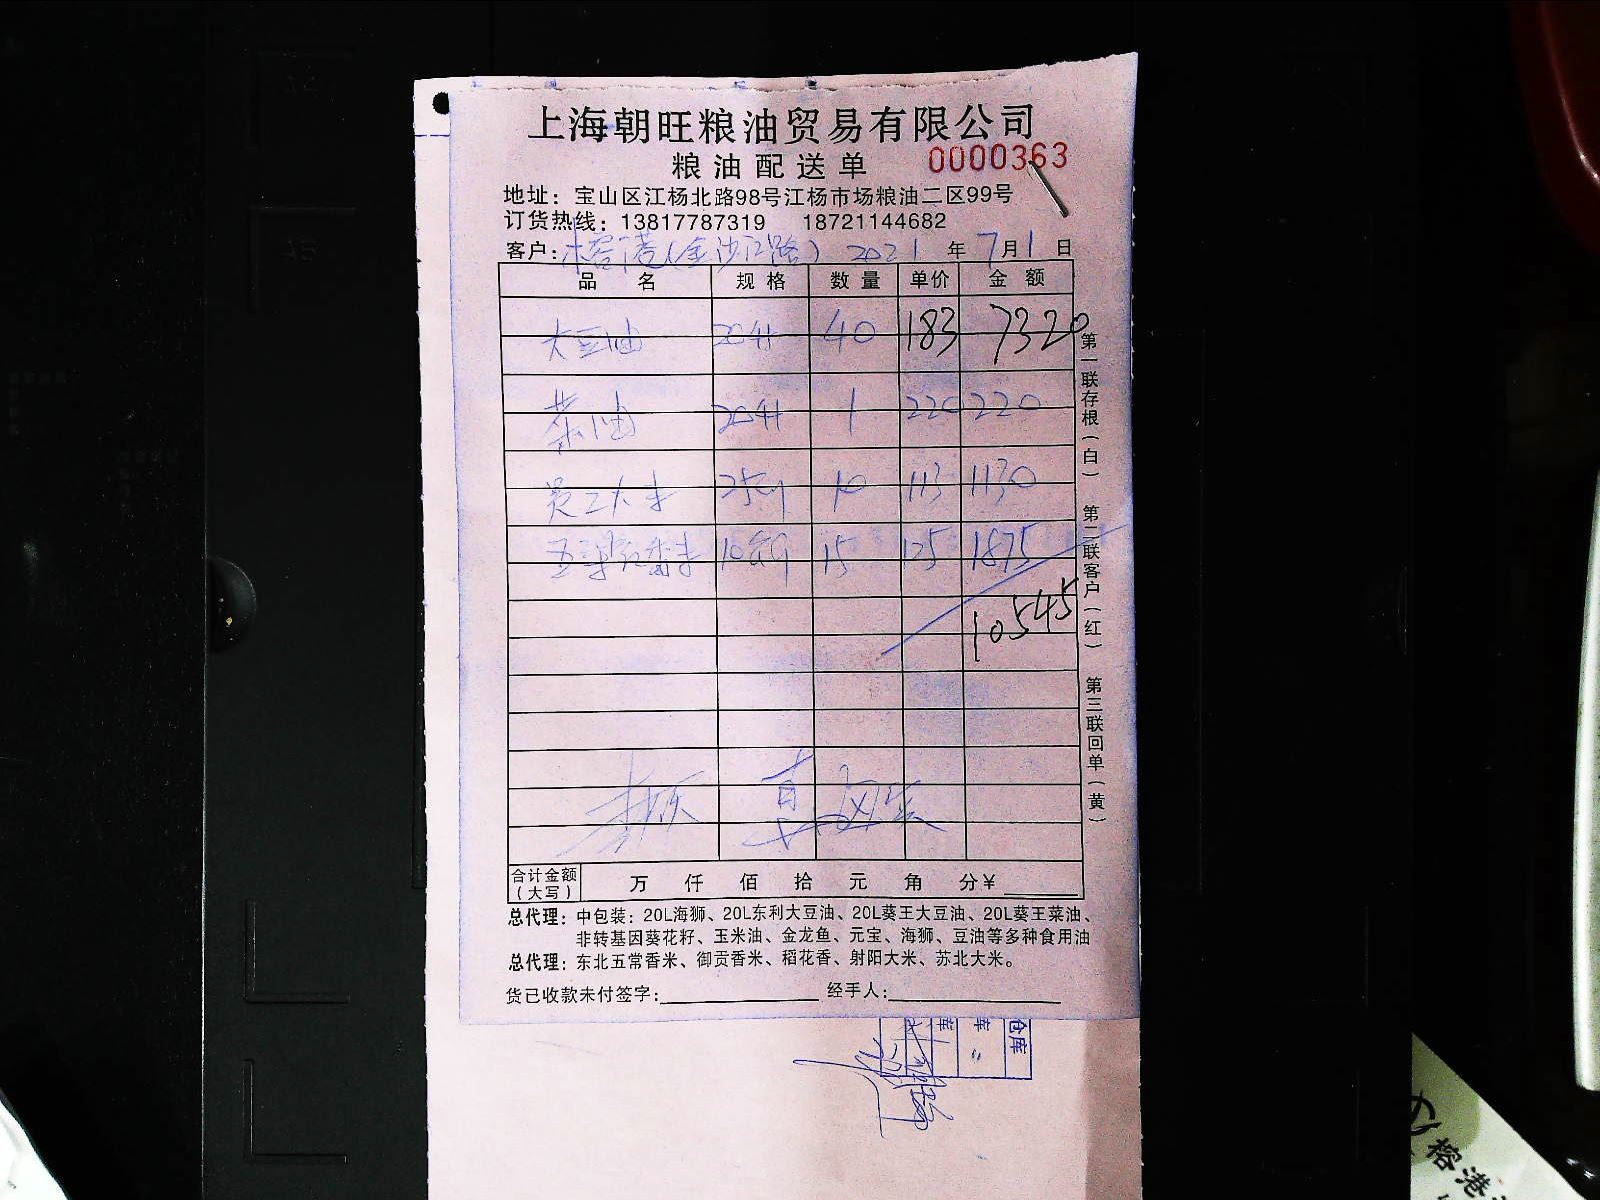 上海朝旺粮油贸易有限公司
粮油配送单 0000363
地址：宝山区江杨北路98号江杨市场粮油二区99号
订货热线：13817787319 18721144682
客户：榕港(金沙江路) 2021 年 7月1日
品 名 规格 数量 单价 金额
大豆油 20升 40 183 7320
菜油 20升 1 220 220
员工大米 25kg 10 113 1130
五常稻香米 10kg 15 125 1875
10545
合计金额（大写） 万 仟 佰 拾 元 角 分￥
总代理：中包装：20L海狮、20L东利大豆油、20L葵王大豆油、20L葵王菜油、
非转基因葵花籽、玉米油、金龙鱼、元宝、海狮、豆油等多种食用油
总代理：东北五常香米、御贡香米、稻花香、射阳大米、苏北大米。
货已收款未付签字： 经手人：
第一联存根（白） 第二联客户（红） 第三联回单（黄）
仓库
库
库
榕港